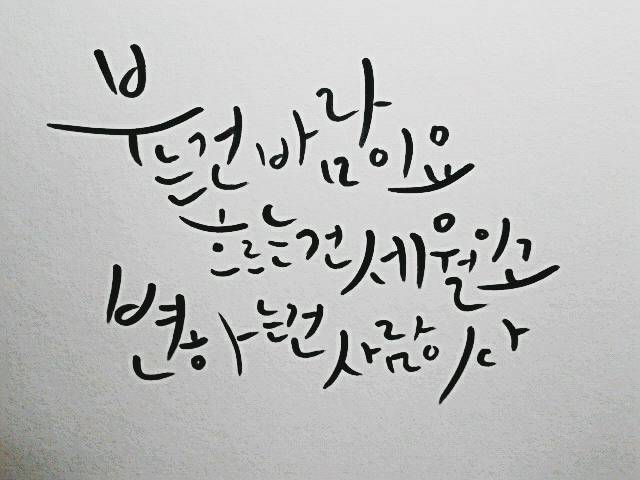 부는건 바람이요
흐르는건 세월이고
변하는건 사람이다